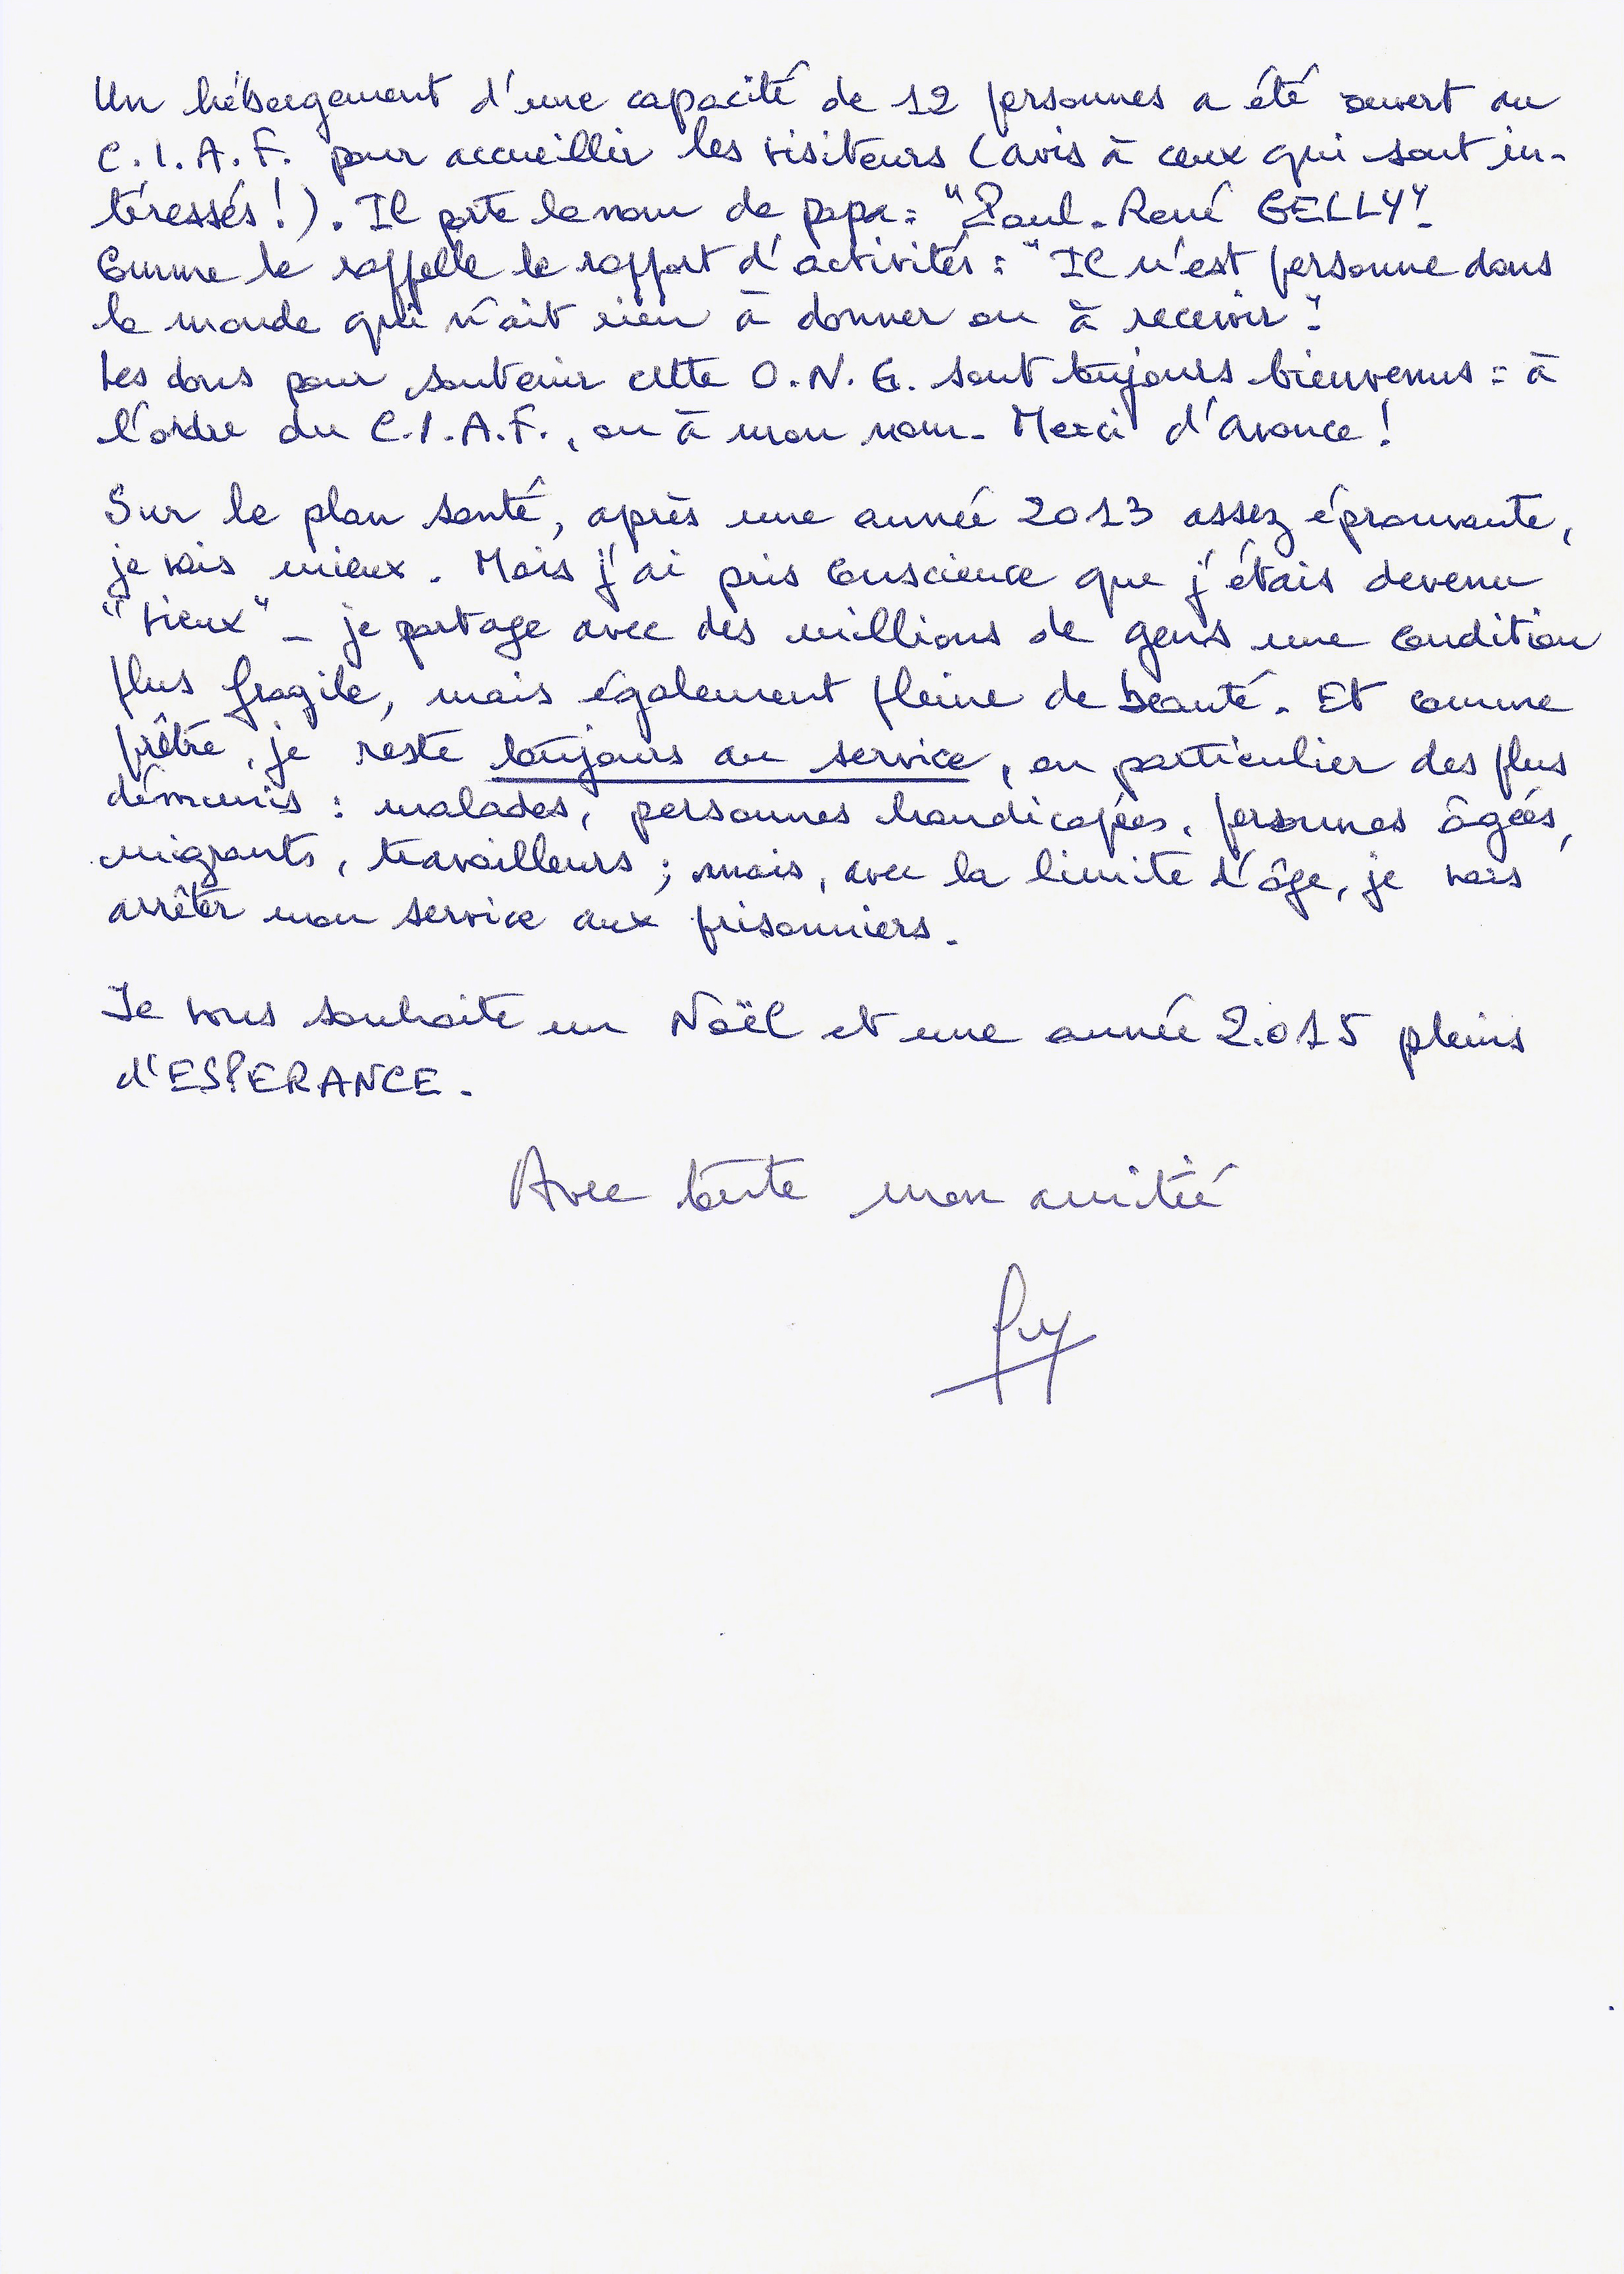 Un hébergement d'une capacité de 12 personnes a été ouvert au
C.I.A.F. pour accueillir les visiteurs (avis à ceux qui sont in-
téressés!). Il porte le nom de papa : "Paul-René GELLY".
Comme le rappelle le rapport d'activités : "Il n'est personne dans
le monde qui n'ait rien à donner ou à recevoir".
Les dons pour soutenir cette O.N.G. sont toujours bienvenus : à
l'ordre du C.I.A.F., ou à mon nom. Merci d'avance !
Sur le plan santé, après une année 2013 assez éprouvante,
je vais mieux. Mais j'ai pris conscience que j'étais devenu
"vieux" - je partage avec des millions de gens une condition
plus fragile, mais également pleine de beauté. Et comme
prêtre, je reste toujours au service, en particulier des plus
démunis : malades, personnes handicapées, personnes âgées,
migrants, travailleurs ; mais, avec la limite d'âge, je vais
arrêter mon service aux prisonniers.
Je vous souhaite un Noël et une année 2.015 pleins
d'ESPERANCE.
Avec toute mon amitié
Guy